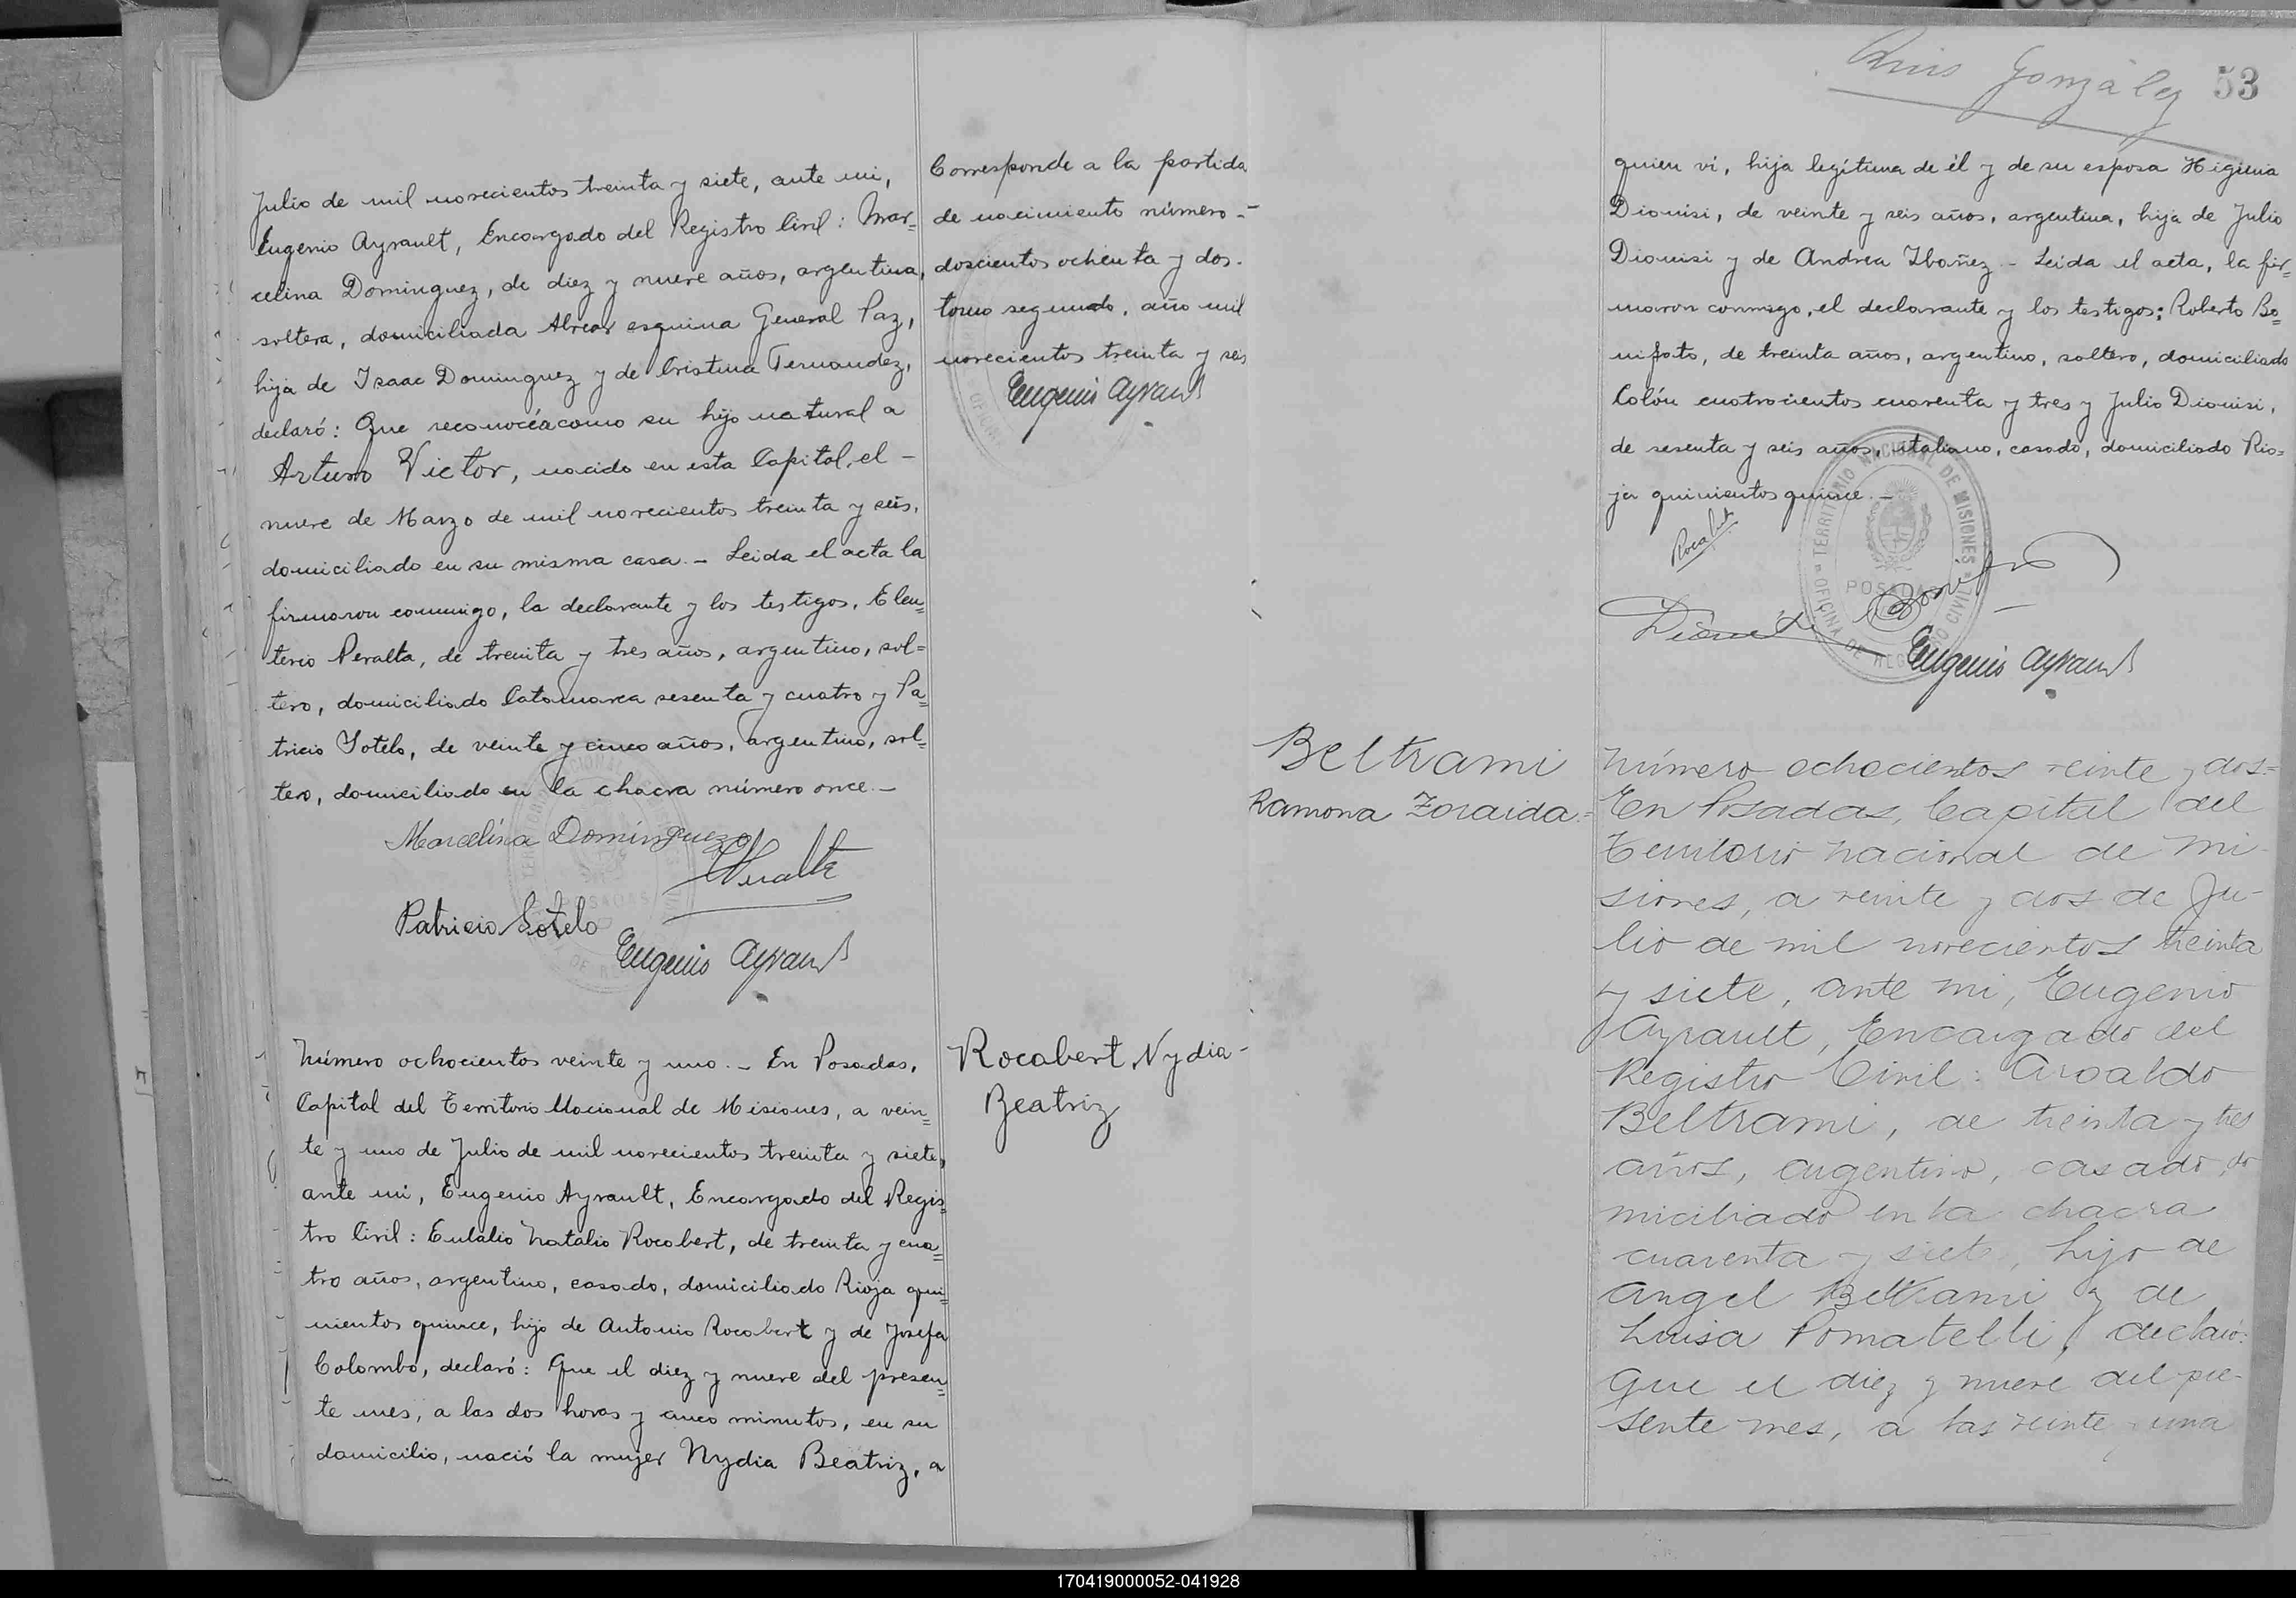 Julio de mil novecientos treinta y siete, ante mi,
Eugenio Ayrault, Encargado del Registro Civil: Mar=
celina Dominguez, de diez y nueve años, argentina,
soltera, domiciliada Alvear esquina General Paz,
hija de Isaac Dominguez y de Cristina Fernandez,
declaró: Que reconocía como su hijo natural a
Arturo Victor, nacido en esta Capital, el -
nueve de Marzo de mil novecientos treinta y seis,
domiciliado en su misma casa. - Leida el acta la
firmaron conmigo, la declarante y los testigos, Eleu=
terio Peralta, de treinta y tres años, argentino, sol=
tero, domiciliado Catamarca sesenta y cuatro y Pa=
tricio Sotelo, de veinte y cinco años, argentino, sol=
tero, domiciliado en la chacra número once. -
Marcelina Dominguez
Peralta
Patricio Sotelo
Eugenio Ayrault
Corresponde a la partida
de nacimiento número -
doscientos ochenta y dos.
tomo segundo, año mil
novecientos treinta y seis
Eugenio Ayrault
Número ochocientos veinte y uno. - En Posadas,
Capital del Territorio Nacional de Misiones, a vein=
te y uno de Julio de mil novecientos treinta y siete,
ante mi, Eugenio Ayrault, Encargado del Regis=
tro Civil: Eulalio Natalio Rocabert, de treinta y cua=
tro años, argentino, casado, domiciliado Rioja qui=
nientos quince, hijo de Antonio Rocabert y de Josefa
Colombo, declaró: Que el diez y nueve del presen=
te mes, a las dos horas y cinco minutos, en su
domicilio, nació la mujer Nydia Beatriz, a
Rocabert, Nydia -
Beatriz
González 53
quien vi, hija legítima de él y de su esposa Higinia
Dionisi, de veinte y seis años, argentina, hija de Julio
Dionisi y de Andrea Ibañez. - Leida el acta, la fir=
maron conmigo, el declarante y los testigos: Roberto Bo=
nifato, de treinta años, argentino, soltero, domiciliado
Colón cuatrocientos cuarenta y tres y Julio Dionisi,
de sesenta y seis años, italiano, casado, domiciliado Rio=
ja quinientos quince. -
TERRITORIO NACIONAL DE MISIONES
POSADAS
OFICINA DE REGISTRO CIVIL
Eugenio Ayrault
Beltrami
Ramona Zoraida =
Número ochocientos veinte y dos =
En Posadas, Capital del
Territorio Nacional de Mi-
siones, a veinte y dos de Ju-
lio de mil novecientos treinta
y siete, ante mi, Eugenio
Ayrault, Encargado del
Registro Civil: Aroaldo
Beltrami, de treinta y tres
años, argentino, casado, do
miciliado en la chacra
cuarenta y siete, hijo de
Angel Beltrami y de
Luisa Pomatelli, declaró:
Que el diez y nueve del pre-
sente mes, a las veinte y una
170419000052-041928